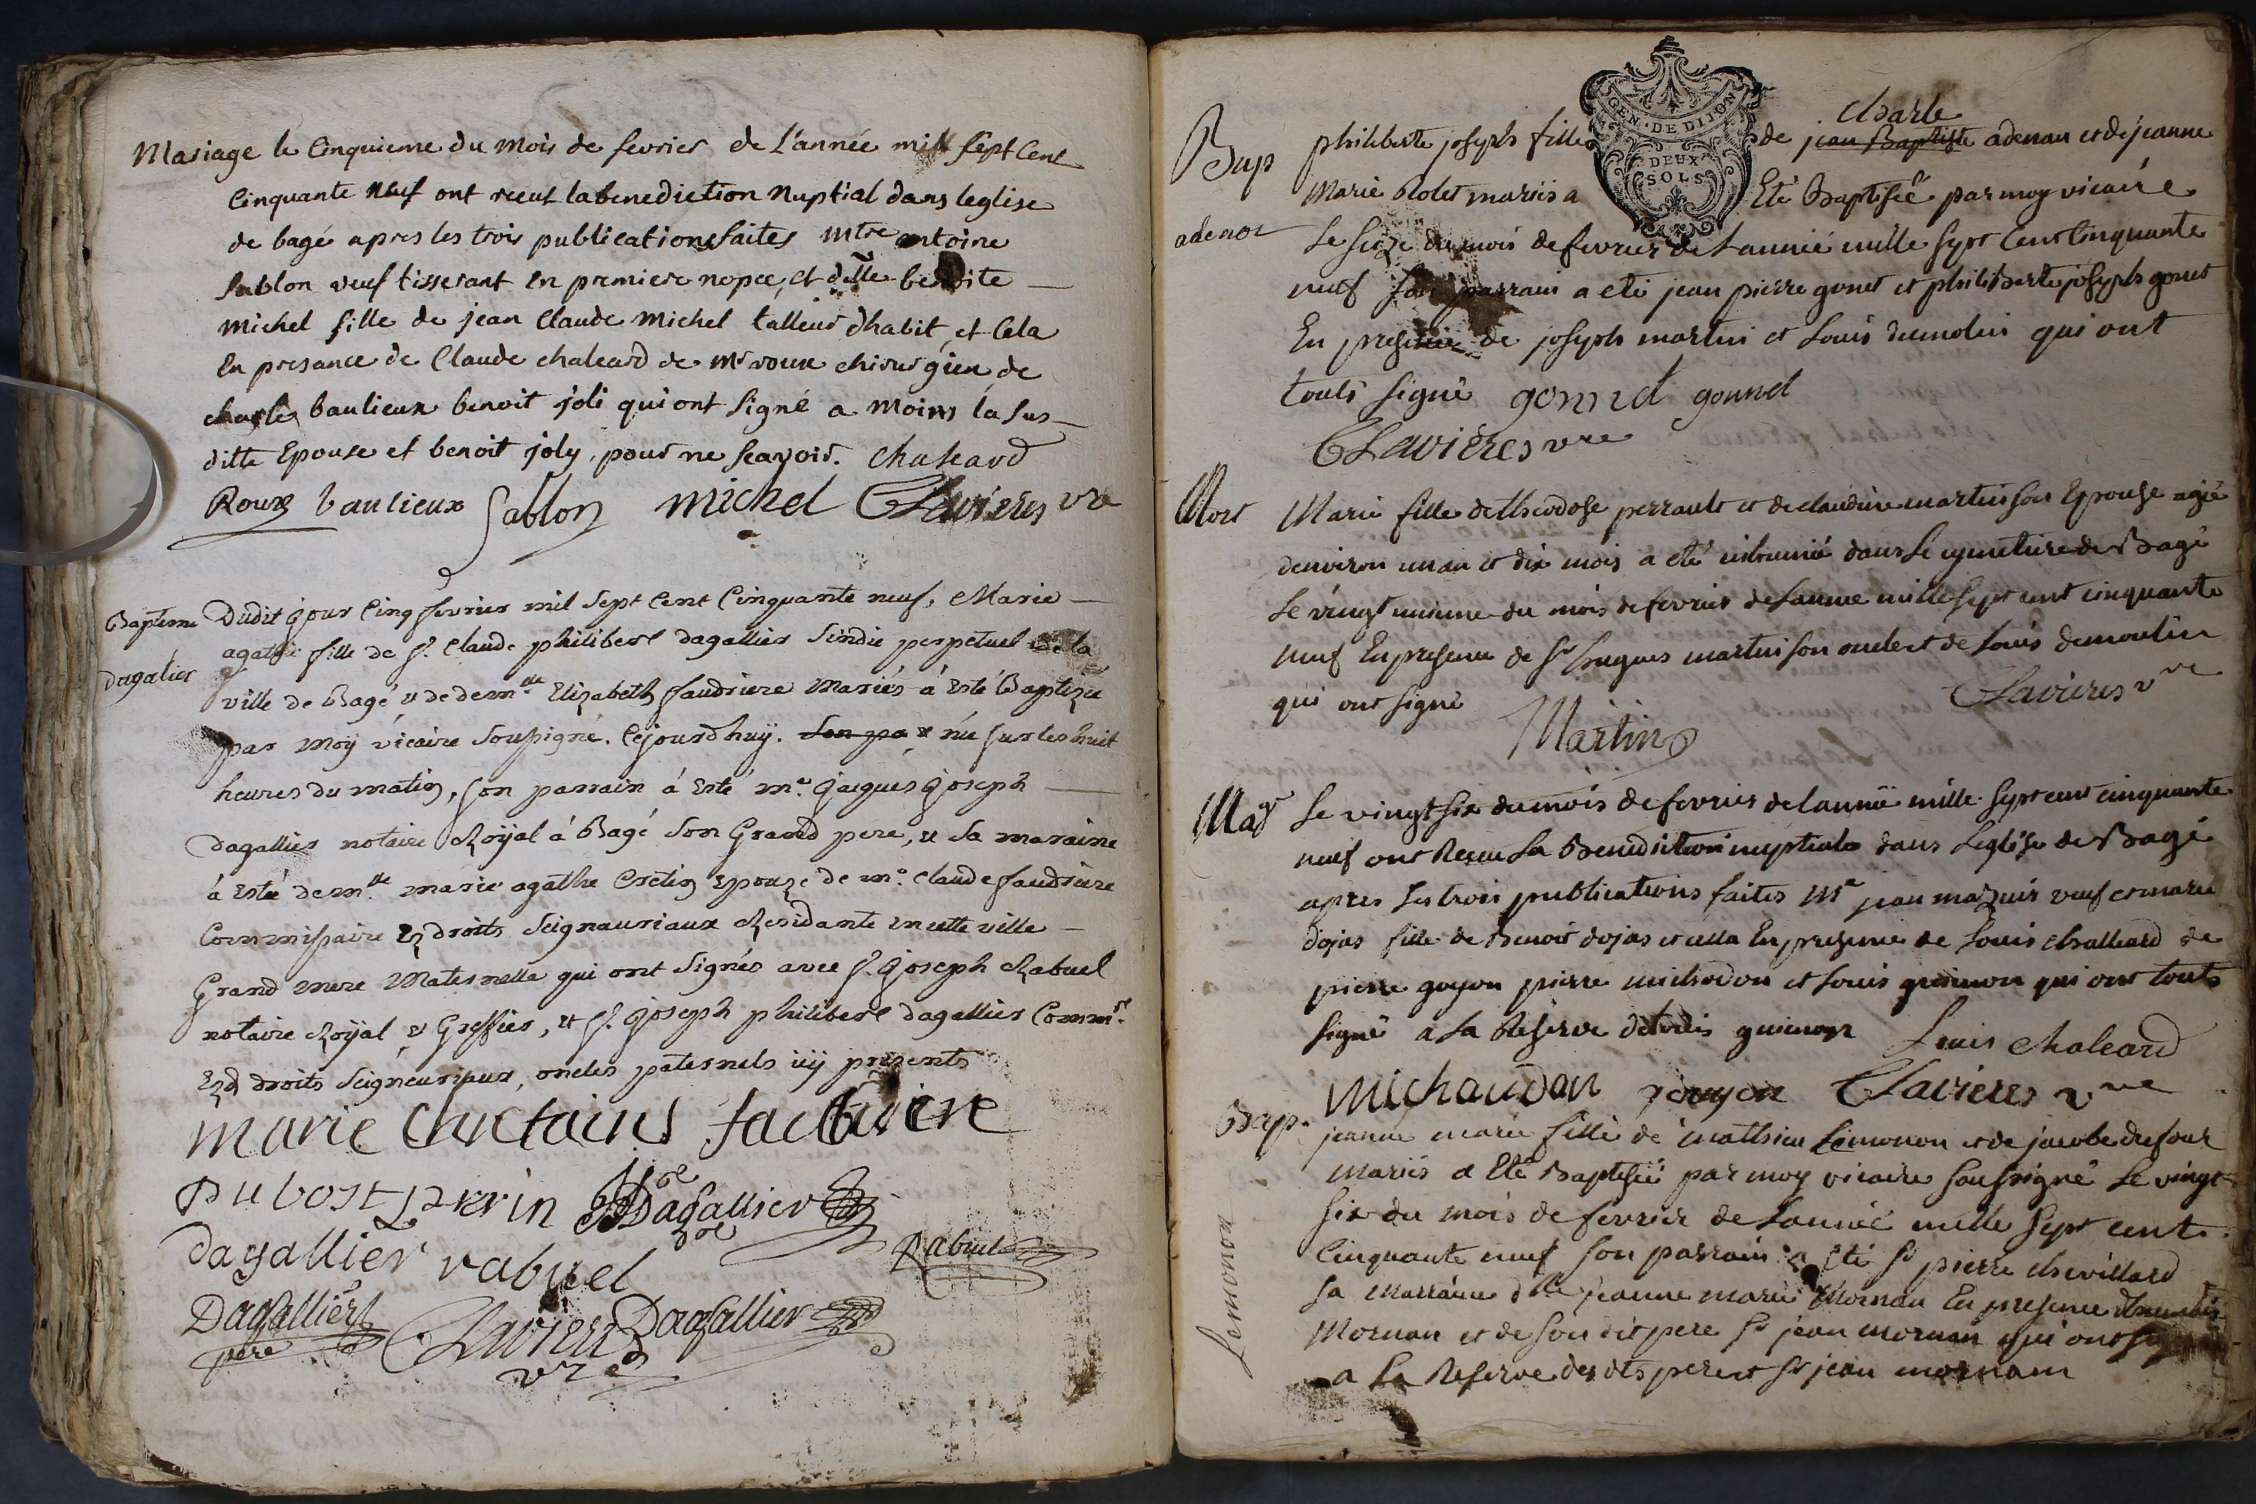 Mariage le Cinquieme du Mois de fevrier de L'année mil sept Cent
Cinquante neuf ont receut la benediction Nuptial dans leglise
de bagé apres les trois publications faites Mtre antoine
Sablon veuf tisserant en premiere nopce, et dlle benoite
Michel fille de jean Claude Michel talleur dhabit, et Cela
En presance de Claude chaleard de Mr roux chirurgien de
charles baulieux benoit joli qui ont Signé a moins la sus
ditte Epouse et benoit joly, pour ne Scavoir. Chaleard
Roux baulieux Sablon Michel CLavieres vre
Bapteme
dagalier
Dudit jour Cinq fevrier mil Sept Cent Cinquante neuf, Marie
agathe fille de Sr. Claude philibert dagallier Sindic perpetuel de la
ville de Bagé et de demlle Elizabeth faudriere Mariés à Esté Baptizée
par moÿ vicaire Soussigné. Cejourdhuÿ. née sur les huit
heures du matin, Son parrain à Esté me. Jacques Joseph
dagallier notaire Roÿal à Bagé Son Grand pere, et Sa maraine
à Esté demlle marie agathe Cretin Epouze de me. Claude faudriere
Commissaire En droits Seignauriaux Residante en cette ville
Grand mere Maternelle qui ont Signés avec Sr. Joseph Rabuel
notaire Roÿal et Greffier, et Sr. Joseph philibert dagallier Commre.
End droits Seigneuriaux, oncles paternels iÿ présents
marie faudriere
Dubost perrin Dagallier
dagallier rabuel Rabuel
Dagallier père CLavieres vre Dagallier
GEN. DE DIJON
DEUX
SOLS
Bap
adenot
charle
philiberte joseph fille de jean Baptiste adenau et de jeanne
Marie Rolet mariés a Eté Baptisée par moy vicaire
Le Size du mois de fevrier de Lannée mille Sept Cent Cinquante
neuf Son parrain a eté jean pierre gonet et philiberte joseph gonet
En presence de joseph martin et Louis dumolin qui ont
touts signé gonnet gonnet
CLavières vre
Mort
Marie fille de theodose perrault et de claudine martin son Epouse agée
denviron un an et dix mois a eté inhumé dans Le cymetiere de Bagé
Le vingt unieme du mois de fevrier de Lannee mille Sept cent cinquante
neuf En presence de Sr hugues martin son oncle et de Louis demoulin
qui ont signé CLavieres vre
Martin
Mage
Le vingt six du mois de fevrier de lannée mille sept cent cinquante
neuf ont Receu La Benediction nuptiale dans Leglise de Bagé
apres Les trois publications faites Me jean mazuir veuf et marie
dojas fille de Benoit dojas et cella En presence de Louis challeard de
pierre goyon pierre michodon et Louis guimon qui ont touts
signé a La Reserve de Louis guimon Louis chaleard
Michaudon gouyon CLavieres vre
Bap.
Lemonon
jeanne marie fille de mathieu Lemonon et de jacobe dufour
Mariés a Eté Baptisée par moy vicaire Soussigné Le vingt
six du mois de fevrier de Lannée mille Sept cent
Cinquante neuf son parrain a Eté Sr pierre chevillard
Sa Marraine dlle jeanne marie Mornan En presence
Mornan et de Son dit pere Sr jean mornan qui ont
a La Reserve des dts pere et Sr jean mornan